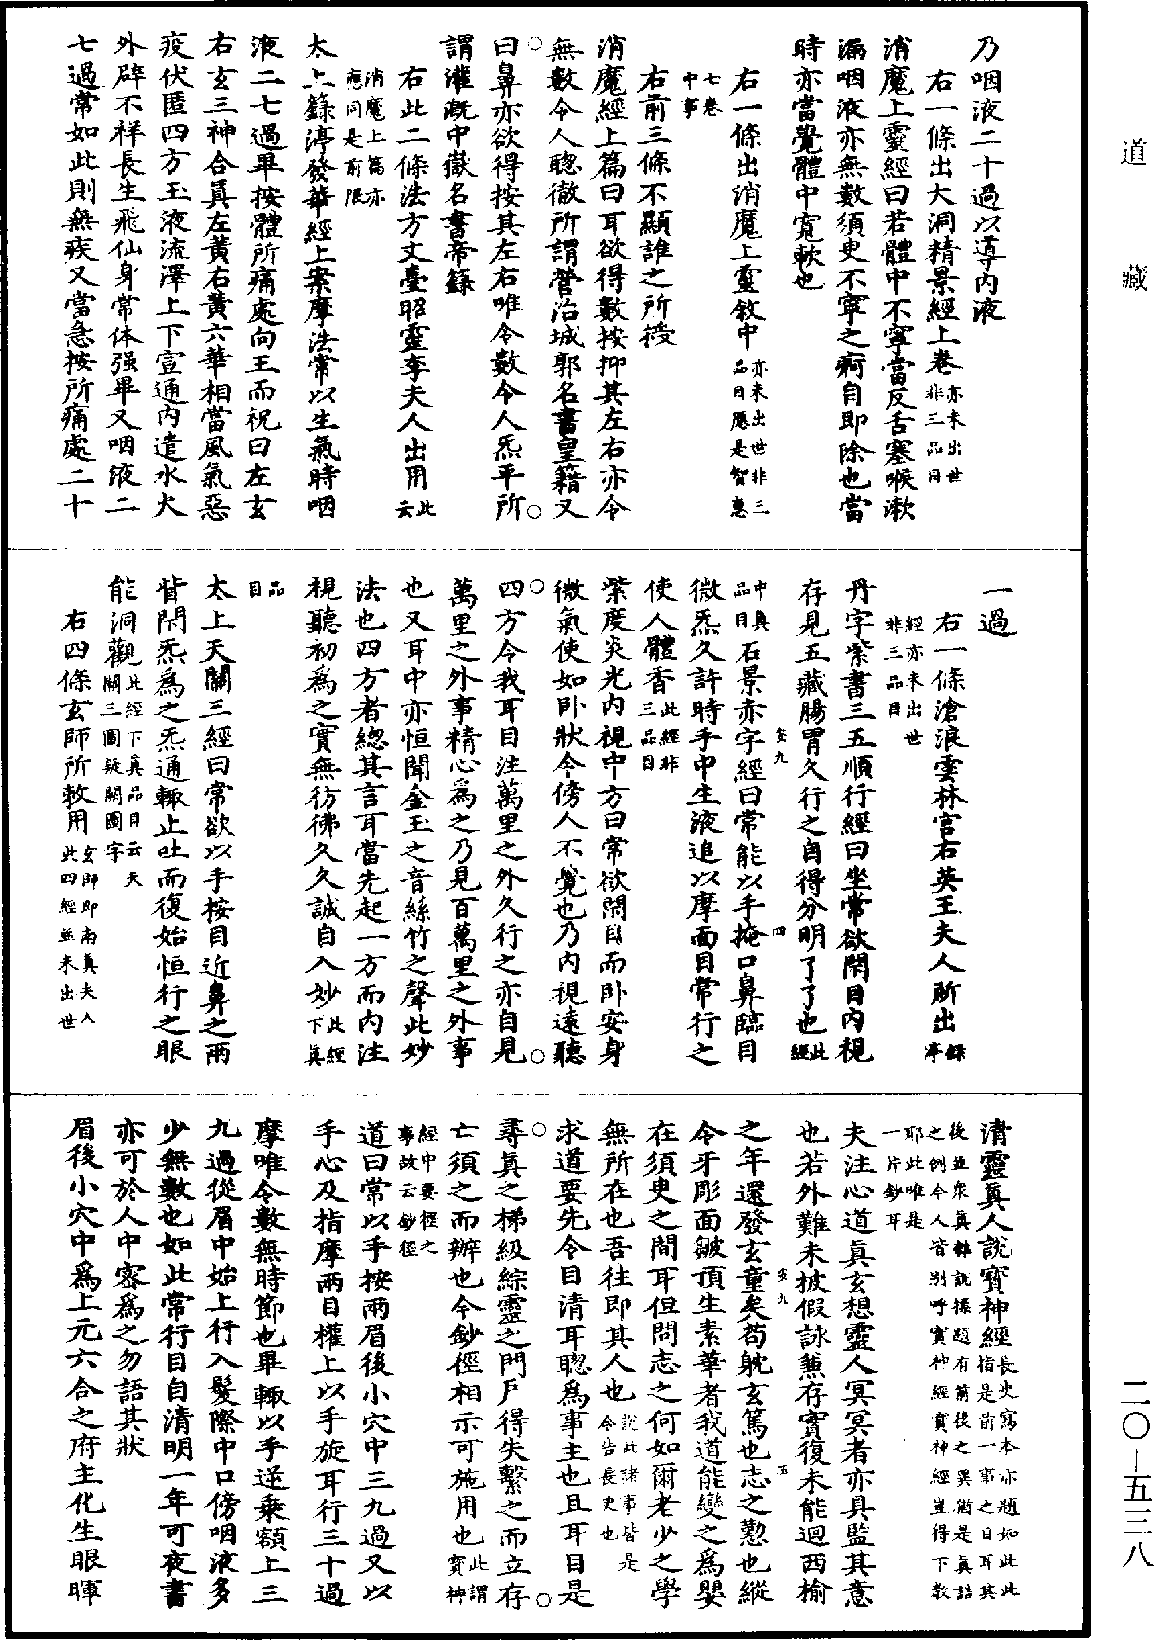 道藏
乃咽液二十過以導內液
右一條出大洞精景經上卷亦未出世非三品目
消魔上靈經曰若體中不寧當反舌塞喉漱
漏咽液亦無數須臾不寧之痾自即除也當
時亦當覺體中寬軟也
右一條出消魔上靈敘中亦未出世非三品目應是智慧
七卷中事
右前三條不顯誰之所授
消魔經上篇曰耳欲得數按抑其左右亦令
無數令人聰徹所謂營治城郭名書皇籍又
曰鼻亦欲得按其左右唯令數令人炁平所
謂灌溉中嶽名書帝籙
右此二條法方丈臺昭靈李夫人出用此云
消魔上篇亦應同是前限
太上籙渟發華經上案摩法常以生氣時咽
液二七過畢按體所痛處向王而祝曰左玄
右玄三神合真左黃右黃六華相當風氣惡
疫伏匿四方玉液流澤上下宣通內遣水火
外辟不祥長生飛仙身常体强畢又咽液二
七過常如此則無疾又當急按所痛處二十
一過
右一條滄浪雲林宮右英王夫人所出籙渟
經亦未出世非三品目
丹字紫書三五順行經曰坐常欲閉目內視
存見五藏腸胃久行之自得分明了了也此經
中真品目石景赤字經曰常能以手掩口鼻臨目
微炁久許時手中生液追以摩面目常行之
使人體香此經非三品目
紫度炎光內視中方曰常欲閉目而卧安身
微氣使如卧狀令傍人不覺也乃內視遠聽
四方令我耳目注萬里之外久行之亦自見
萬里之外事精心為之乃見百萬里之外事
也又耳中亦恒聞金玉之音絲竹之聲此妙
法也四方者總其言耳當先起一方而內注
視聽初為之實無彷彿久久誠自入妙此經下真
品目
太上天關三經曰常欲以手按目近鼻之兩
眥閉炁為之炁通輒止吐而復始恒行之眼
能洞觀此經下真品目云天關三圖疑關圖字
右四條玄師所敕用玄師即南真夫人此四經並未出世
清靈真人說寶神經長史寫本亦題如此此指是前一事之目耳其
後並衆真雜說摽題有前後之異猶是真誥之例今人皆別呼寶神經寶神經豈得下教
耶此唯是一片鈔耳
夫注心道真玄想靈人冥冥者亦具監其意
也若外難未披假詠兼存實復未能迴西榆
之年還發玄童矣苟躭玄篤也志之懃也縱
令牙彫面皺頂生素華者我道能變之為嬰
在須臾之間耳但問志之何如爾老少之學
無所在也吾往即其人也說此諸事皆是令告長史也
求道要先令目清耳聰為事主也且耳目是
尋真之梯級綜靈之門戶得失繫之而立存
亡須之而辦也今鈔徑相示可施用也此謂寶神
經中要徑之事故云鈔徑
道曰常以手按兩眉後小穴中三九過又以
手心及指摩兩目權上以手旋耳行三十過
摩唯令數無時節也畢輒以手逆乘額上三
九過從眉中始上行入髮際中口傍咽液多
少無數也如此常行目自清明一年可夜書
亦可於人中密為之勿語其狀
眉後小穴中為上元六合之府主化生眼暉
二〇—五三八